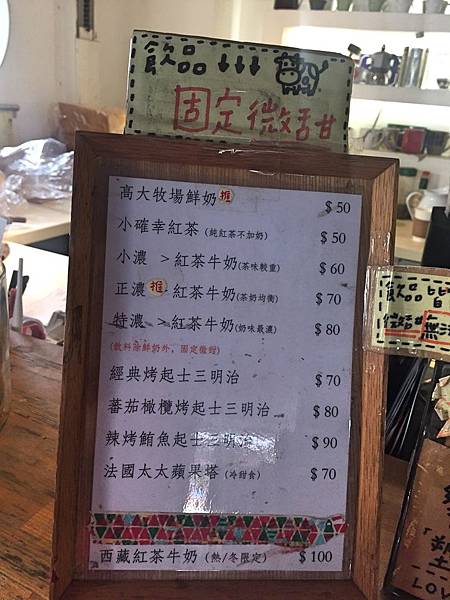 飲品↓↓↓
固定微甜
高大牧場鮮奶 推 $50
小確幸紅茶 (純紅茶不加奶) $50
小濃 >紅茶牛奶(茶味較重) $60
正濃 推 紅茶牛奶(茶奶均衡) $70
特濃 >紅茶牛奶(奶味最濃) $80
(飲料除鮮奶外,固定微甜)
經典烤起士三明治 $70
蕃茄橄欖烤起士三明治 $80
辣烤鮪魚起士三明治 $90
法國太太蘋果塔 (冷甜食) $70
西藏紅茶牛奶 (熱/冬限定) $100
飲品皆
微甜 無法
LOV